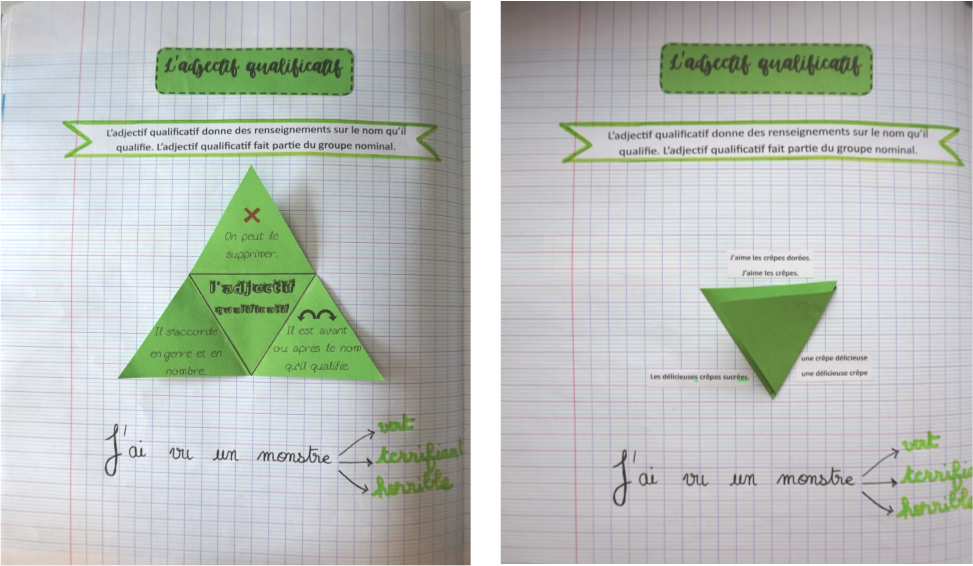 L'adjectif qualificatif
L'adjectif qualificatif donne des renseignements sur le nom qu'il
qualifie. L'adjectif qualificatif fait partie du groupe nominal.
On peut le
supprimer.
l'adjectif
qualificatif
Il s'accorde
en genre et en
nombre.
Il est avant
ou après le nom
qu'il qualifie.
J'ai vu un monstre
vert
terrifiant
horrible
L'adjectif qualificatif
L'adjectif qualificatif donne des renseignements sur le nom qu'il
qualifie. L'adjectif qualificatif fait partie du groupe nominal.
J'aime les crêpes dorées.
J'aime les crêpes.
Les délicieuses crêpes sucrées.
une crêpe délicieuse
une délicieuse crêpe
J'ai vu un monstre
vert
horrible